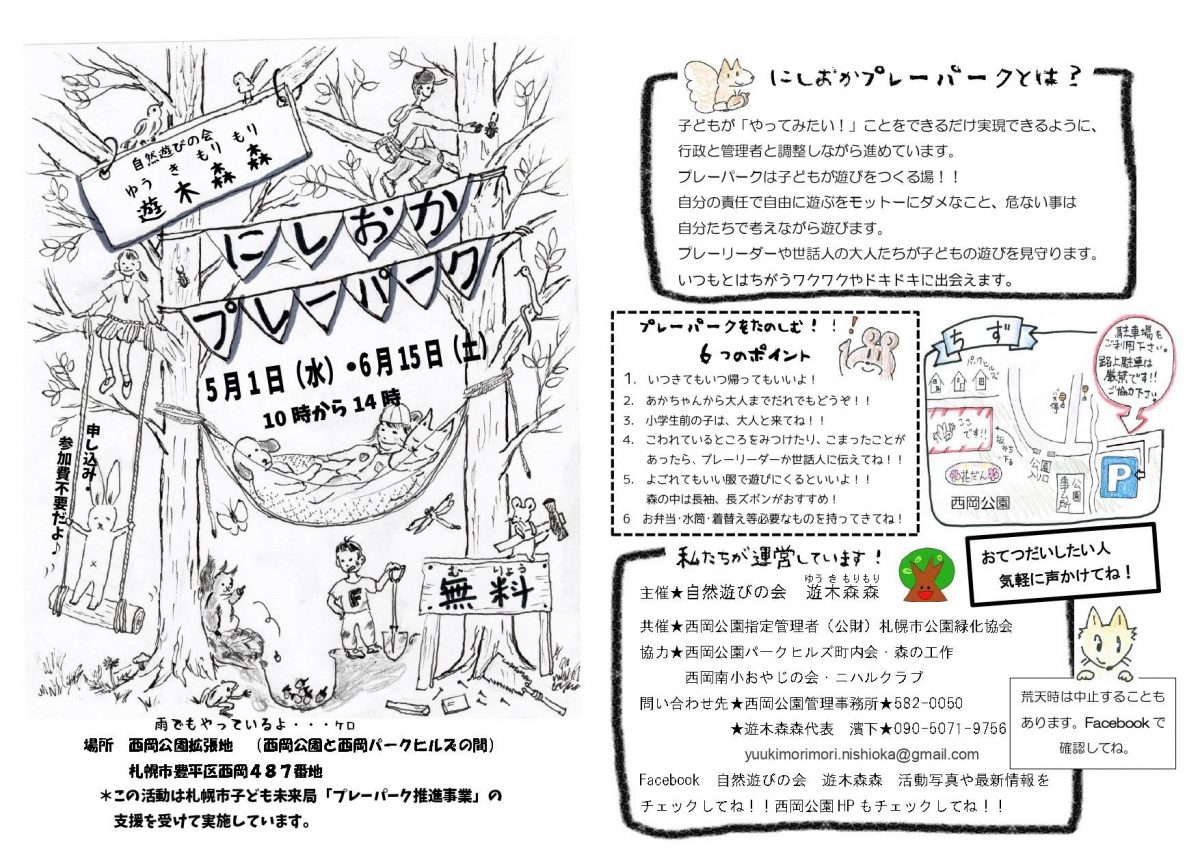 自然遊びの会
ゆう き もり もり
遊木森森
にしおか
プレーパーク
5月1日(水)・6月15日(土)
10時から14時
申し込み・
参加費不要だよ♪
F
む りょう
無料
雨でもやっているよ・・・ケロ
場所 西岡公園拡張地 (西岡公園と西岡パークヒルズの間)
札幌市豊平区西岡487番地
*この活動は札幌市子ども未来局「プレーパーク推進事業」の
支援を受けて実施しています。
にしおかプレーパークとは?
子どもが「やってみたい!」ことをできるだけ実現できるように、
行政と管理者と調整しながら進めています。
プレーパークは子どもが遊びをつくる場!!
自分の責任で自由に遊ぶをモットーにダメなこと、危ない事は
自分たちで考えながら遊びます。
プレーリーダーや世話人の大人たちが子どもの遊びを見守ります。
いつもとはちがうワクワクやドキドキに出会えます。
プレーパークをたのしむ!!
6つのポイント
1. いつきてもいつ帰ってもいいよ!
2. あかちゃんから大人までだれでもどうぞ!!
3. 小学生前の子は、大人と来てね!!
4. こわれているところをみつけたり、こまったことが
あったら、プレーリーダーか世話人に伝えてね!!
5. よごれてもいい服で遊びにくるといいよ!!
森の中は長袖、長ズボンがおすすめ!
6 お弁当・水筒・着替え等必要なものを持ってきてね!
ちず
駐車場を
ご利用下さい。
路上駐車は
厳禁です!!
ご協力下さい。
パークヒルズ
ここ
です!!
坂みち
下る
花だん
公園
入り口
公園
事ム所
P
西岡公園
私たちが運営しています!
主催★自然遊びの会 遊木森森
ゆう き もりもり
共催★西岡公園指定管理者(公財)札幌市公園緑化協会
協力★西岡公園パークヒルズ町内会・森の工作
西岡南小おやじの会・ニハルクラブ
問い合わせ先★西岡公園管理事務所★582-0050
★遊木森森代表 濱下★090-5071-9756
yuukimorimori.nishioka@gmail.com
Facebook 自然遊びの会 遊木森森 活動写真や最新情報を
チェックしてね!!西岡公園HPもチェックしてね!!
おてつだいしたい人
気軽に声かけてね!
荒天時は中止することも
あります。Facebookで
確認してね。